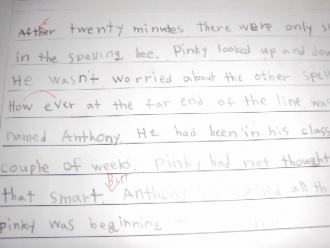 After twenty minutes there were only
in the speving bee. Pinky looked up and dow
He wasn't worried about the other spell
How ever at the far end of the line was
named Anthony. He had been in his class
couple of weeks. Pinky had not thought
But
that smart. Anthony all th
pinky was beginning